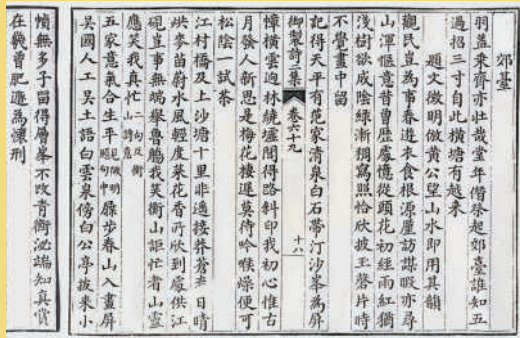 郊臺
羽蓋乘齊亦壯哉當年僭祭起郊臺誰知五
過招三寸自此橫塘有越來
題文徵明倣黃公望山水即用其韻
觀民豈為事春遊衣食根源廑訪謀暇亦尋
山渾愜意昔曾歷處憶從頭花初經雨紅猶
淺樹欲成陰綠漸稠寫照恰欣披玉聲片時
不覺畫中留
御製詩三集 卷六十九 十八
記得天平有范家清泉白石帶汀沙峯為屏
幛橫雲逈林繞墟間得路斜印我初心惟古
月發人新思是梅花棲遲莫待吟喉燥便可
松陰一試茶
江村橋及上沙塘十里非遙接莽蒼春日晴
烘麥苗蔚水風輕度菜花香所欣到處供江
硯豈事無端舉魯觴我笑衡山詎忙者山靈
應笑我真忙二句反衡山詩意
五家意氣合生平見徵明題句中屧步春山入畫屏
吳國人工吳土語白雲泉傍白公亭披來小
幀無多子留得層峯不改青衡泌端知真賞
在幾曾肥遯為懷刑